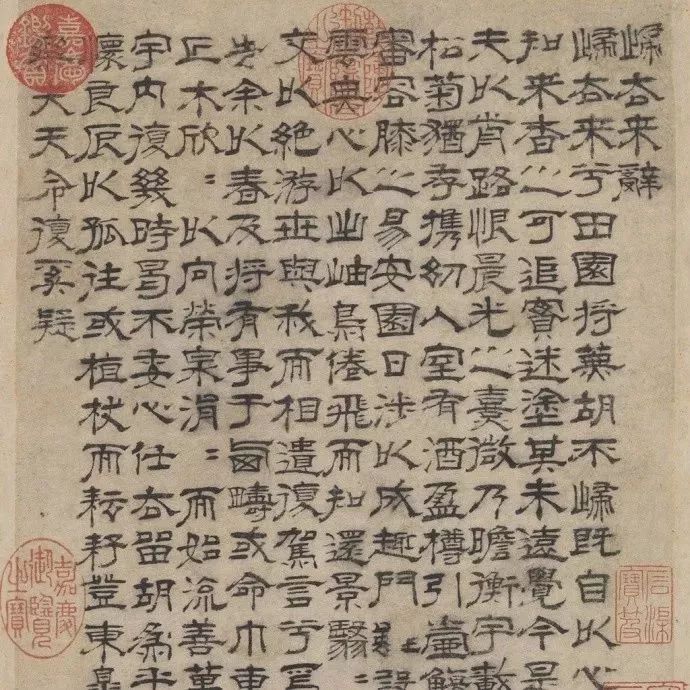 歸去来辭
歸去来兮田園将蕪胡不歸既自以心
知来者之可追實迷塗其未遠覺今是
夫以前路恨晨光之熹微乃瞻衡宇載
松菊猶存携幼入室有酒盈樽引壺觴
審容膝之易安園日涉以成趣門設
雲無心以出岫鳥倦飛而知還景翳〻
交以絶游世與我而相遺復駕言兮焉
告余以春及将有事于西疇或命巾車
丘木欣〻以向榮泉涓〻而始流善萬
宇内復幾時曷不委心任去留胡為乎
懷良辰以孤往或植杖而耘耔登東皋
樂夫天命復奚疑
嘉慶御覽之寶